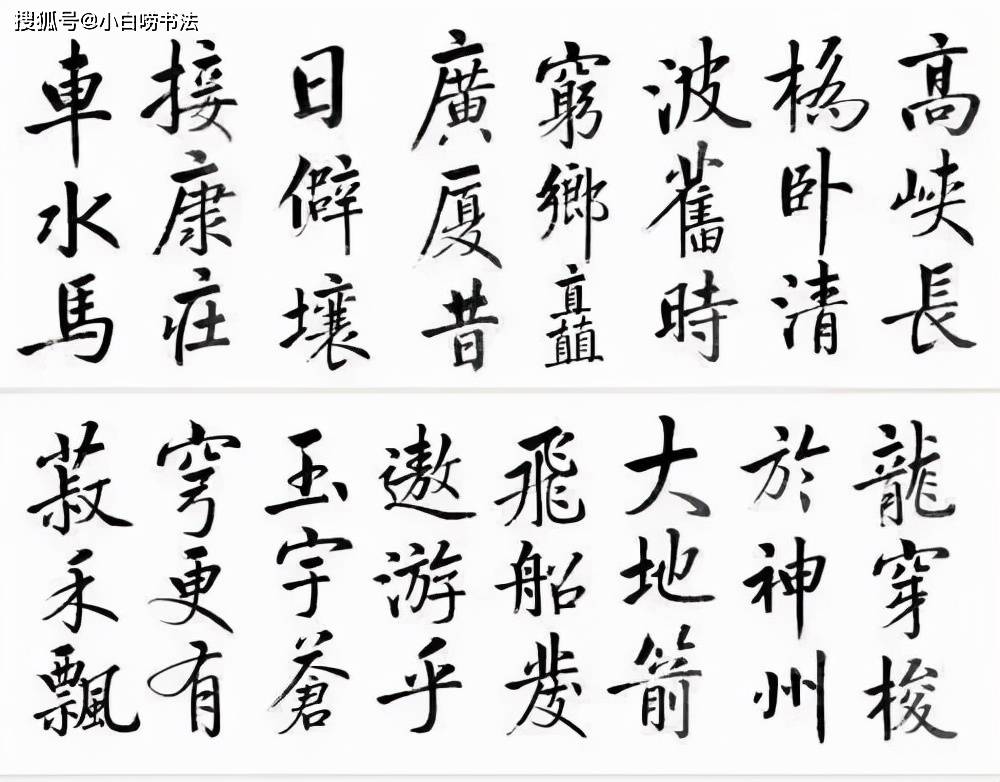 搜狐号@小白唠书法
高峽長
橋卧清
波舊時
窮鄉矗
廣厦昔
日僻壤
接康庄
車水馬
龍穿梭
於神州
大地箭
飛船發
遨游乎
玉宇蒼
穹更有
菽禾飄